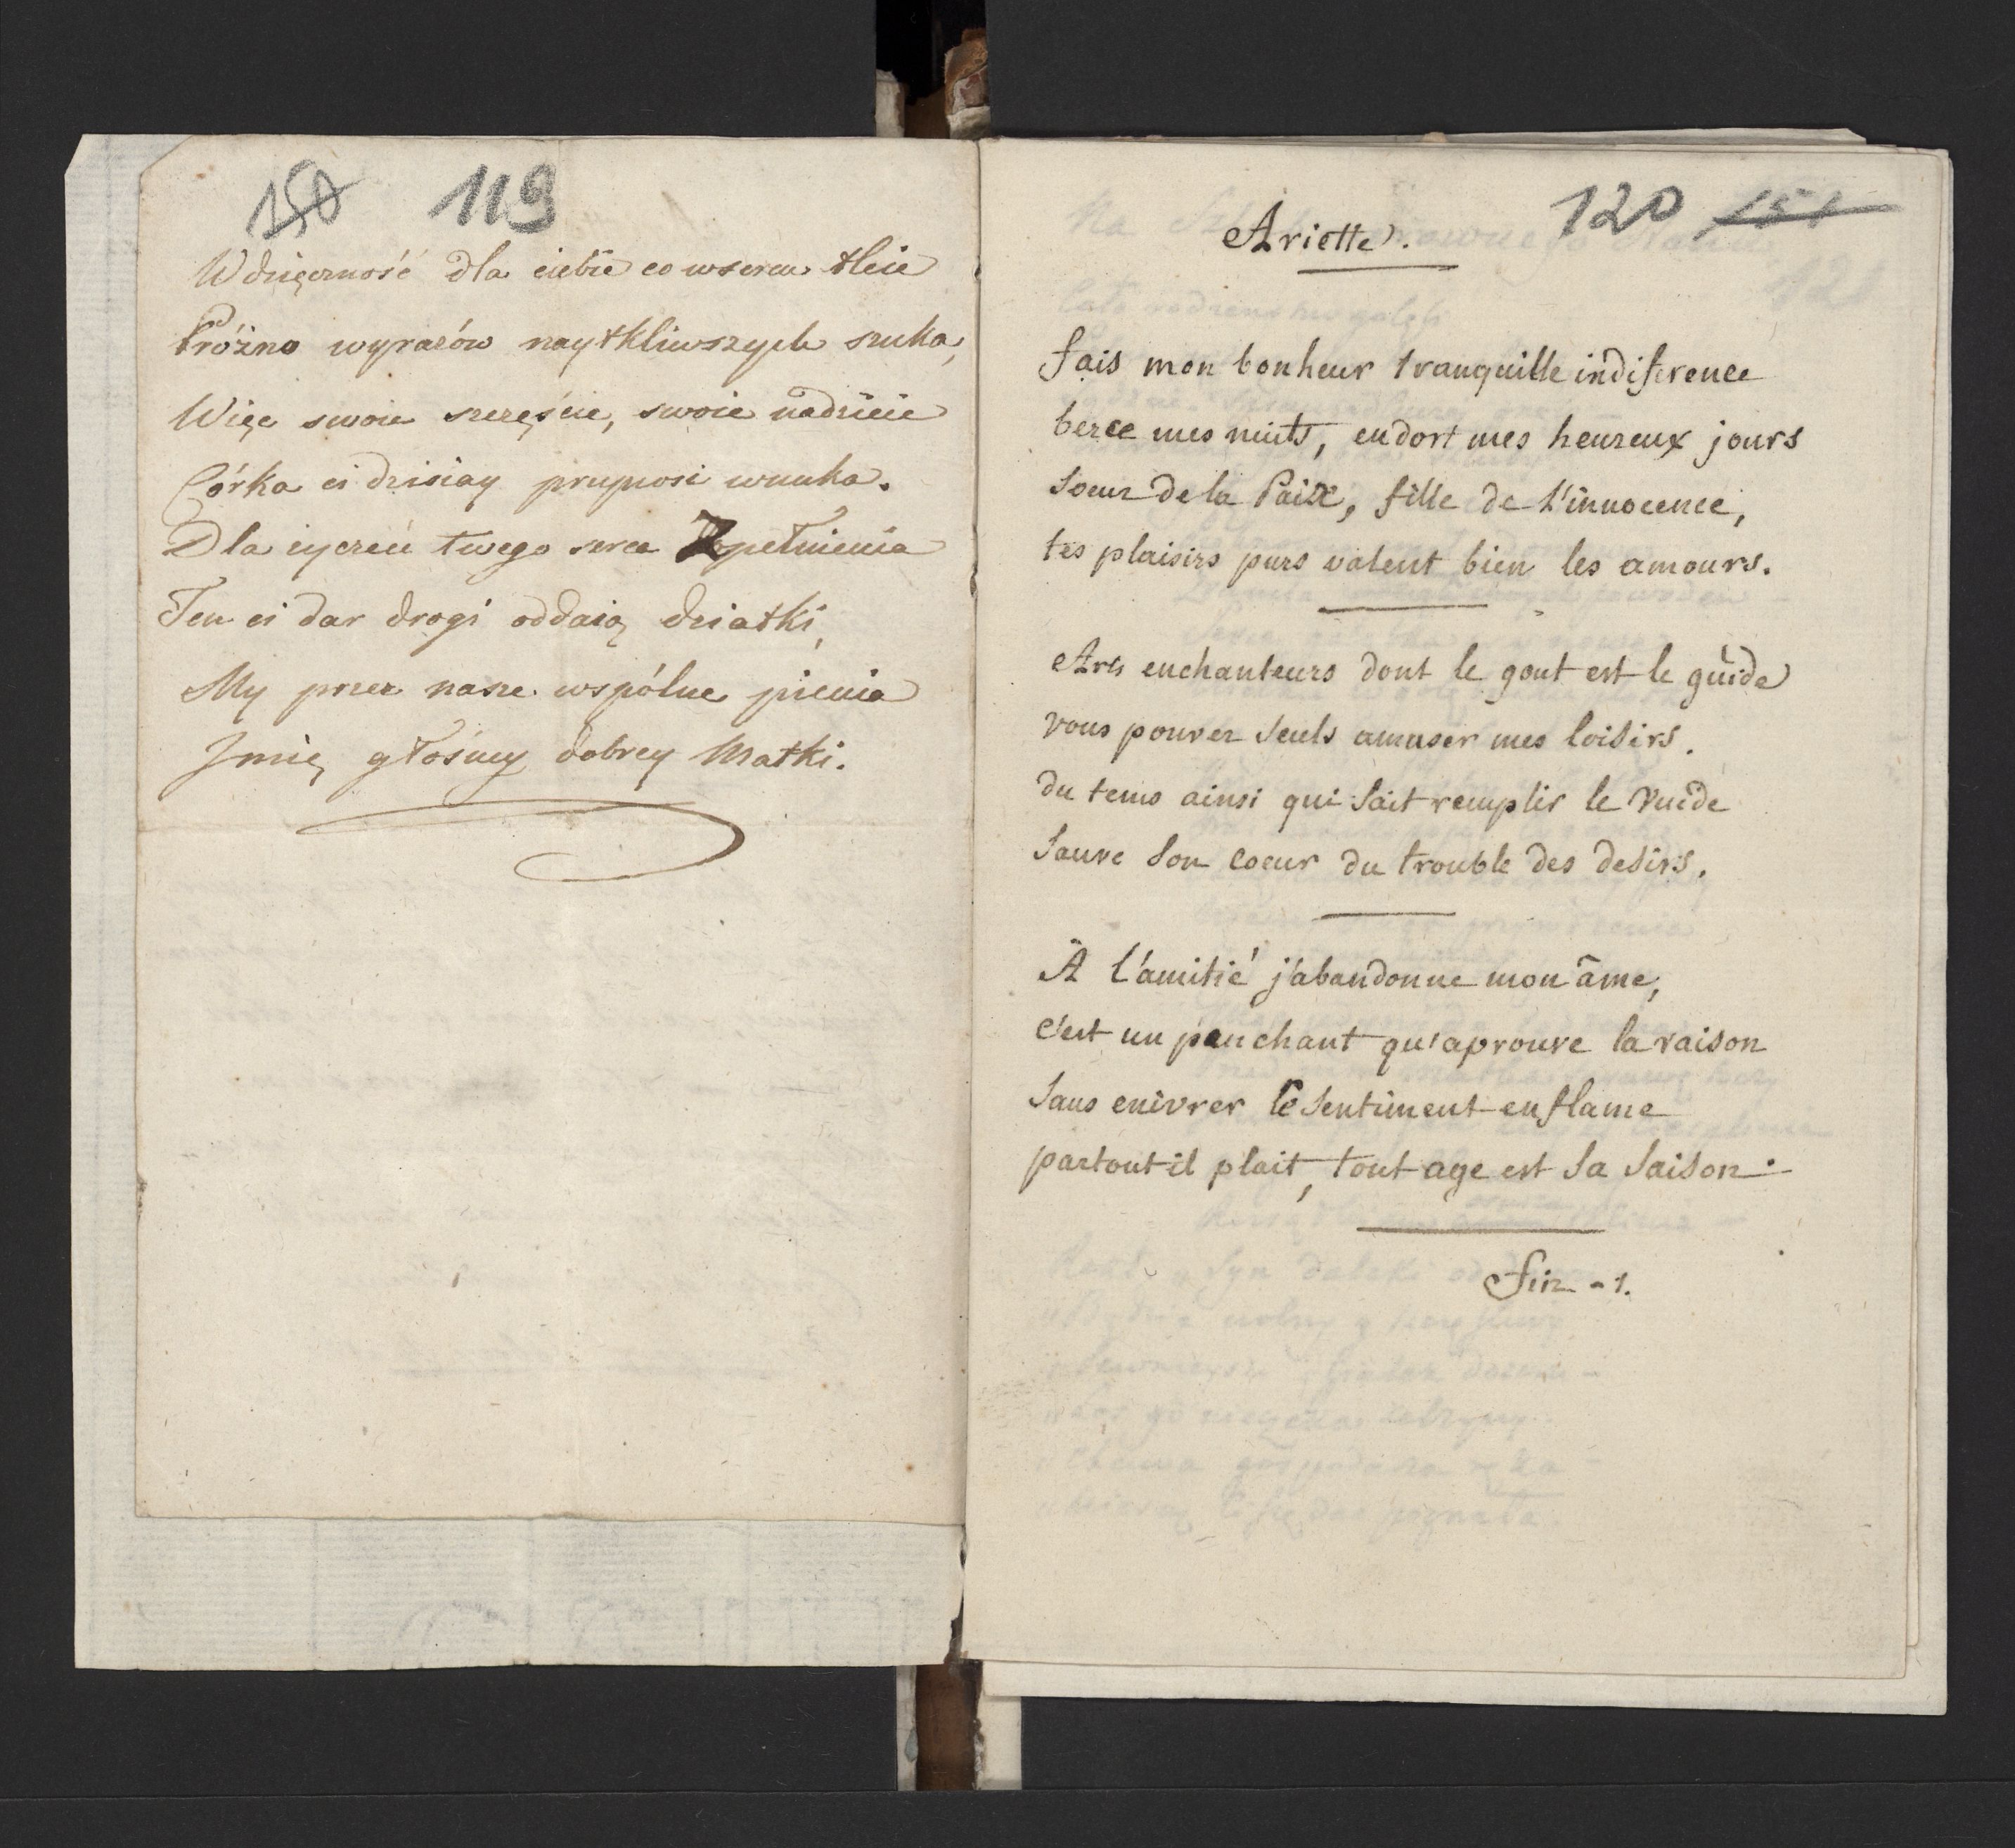 150 119
Wdzięczność dla ciebie co w sercu tleie
Próżno wyrazów naytkliwszych szuka,
Więc swoie szczęście, swoie nadzieie
Córka ci dzisiay przynosi wnuka.
Dla życzeń twego serca Zpełnienia
Ten ci dar drogi oddaią dziatki,
My przez nasze wspólne pienia
Jmię głośmy dobrey Matki.
120 151
Ariette.
fais mon bonheur tranquille indiference
berce mes nuits, endort mes heureux jours
Soeur de la Paix, fille de L'innocence,
tes plaisirs purs valent bien les amours.
Arts enchanteurs dont le gout est le guide
vous pouvez seuls amuser mes loisirs.
du tems ainsi qui sait remplir le Vuide
Sauve Son coeur du trouble des desirs.
A l'amitié j'abandonne mon âme,
c'est un penchant qu'aprouve la raison
Sans enivrer le Sentiment enflame
partout il plait, tout age est Sa Saison.
fin - 1.